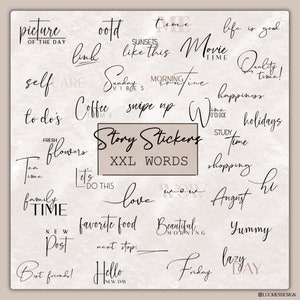 picture
OF THE DAY
ootd
link
SUNSETS
like this
time
Movie
TIME
life is good
Quality
time!
self
CARE
Sunday
VIBES
MORNING
routine
happiness
to do's
Coffee
TIME
swipe up
Wine
O'CLOCK
holidays
FRESH
flowers
Story Stickers
XXL WORDS
STUDY
time
Tea
Time
Let's
DO THIS
shopping
hi
family
TIME
love
WOW
August
NEW
Post
favorite food
Beautiful
MORNING
Yummy
next stop:
Best friends!
Hello
NEW DAY
Friday
lazy
DAY
©LUCKIESDESIGN